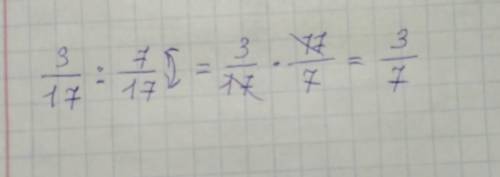 3/17 : 7/17 = 3/17 · 17/7 = 3/7